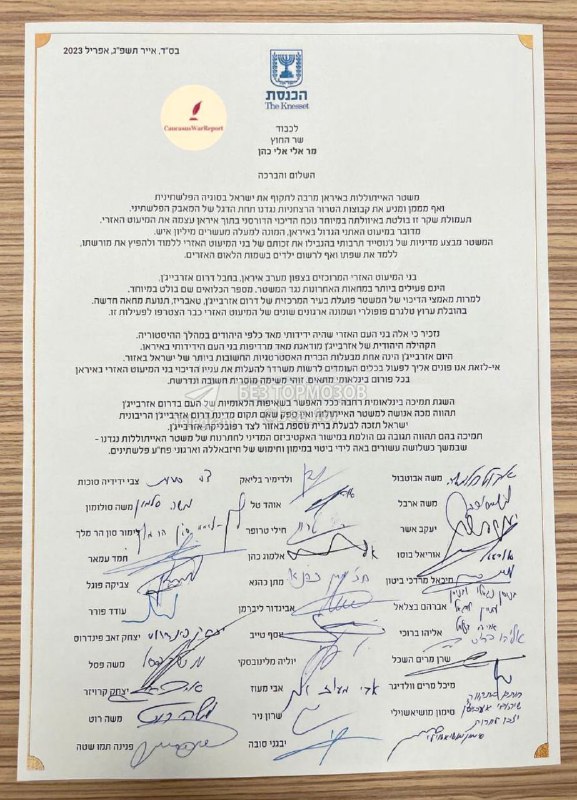 בס"ד, אייר תשפ"ג, אפריל 2023
הכנסת
The Knesset
CaucasusWarReport
לכבוד
שר החוץ
מר אלי אלי כהן
השלום והברכה
משטר האייתוללות באיראן מרבה לתקוף את ישראל בסוגיה הפלשתינית
ואף מממן ומניע את קבוצות הטרור הרצחניות נגדנו תחת הדגל של המאבק הפלשתיני.
תעמולת שקר זו בולטת באיוולתה במיוחד נוכח הדיכוי הדורסני בתוך איראן עצמה את המיעוט האזרי.
מדובר במיעוט האתני הגדול באיראן, המונה למעלה מעשרים מיליון איש.
המשטר מבצע מדיניות של ג'נוסייד תרבותי בהגבילו את זכותם של בני המיעוט האזרי ללמוד ולהפיץ את מורשתו,
ללמד את שפתו ואף לרשום ילדים בשמות הלאום האזרים.
בני המיעוט האזרי המרוכזים בצפון מערב איראן, בחבל דרום אזרבייג'ן,
הינם פעילים ביותר במחאות האחרונות נגד המשטר. מספר הכלואים שם בולט במיוחד.
למרות מאמצי הדיכוי של המשטר פועלת בעיר המרכזית של דרום אזרבייג'ן, טאבריז, תנועת מחאה חדשה.
בהובלת ערוץ טלגרם פופולרי ושמונה ארגונים שונים של המיעוט האזרי כבר הצטרפו לפעילות זו.
נזכיר כי אלה בני העם האזרי שהיה ידידותי מאד כלפי היהודים במהלך ההיסטוריה.
הקהילה היהודית של אזרבייג'ן מודאגת מאד מרדיפות בני העם הידידותי באיראן.
היום אזרבייג'ן הינה אחת מבעלות הברית האסטרטגיות החשובות ביותר של ישראל באזור.
אי-לזאת אנו פונים אליך לפעול בכלים העומדים לרשות משרדך להעלות את ענייו הדיכוי בני המיעוט האזרי באיראן
בכל פורום בינלאומי מתאים. זוהי משימה מוסרית חשובה ונדרשת.
БЕЗ ТОРМОЗОВ
השגת תמיכה בינלאומית רחבה ככל האפשר בשאיפות הלאומיות של העם בדרום אזרבייג'ן
תהווה מכה אנושה למשטר האייתוללות ואין ספק שאם תקום מדינת דרום אזרבייג'ן הריבונית
ישראל תזכה לבעלת ברית נוספת באזור לצד רפובליקת אזרבייג'ן.
תמיכה בהם תהווה תגובה גם הולמת במישור האקטיביזם המדיני לחתרנות של משטר האייתוללות נגדנו -
שבמשך כשלושה עשורים באה לידי ביטוי במימון וחימוש של חיזבאללה וארגוני פח"ע פלשתינים.
משה אבוטבול ולדימיר בליאק צבי ידידיה סוכות
משה ארבל אוהד טל משה סולומון
יעקב אשר חילי טרופר לימור סון הר מלך
אוריאל בוסו אלמוג כהן חמד עמאר
מיכאל מרדכי ביטון מתן כהנא צביקה פוגל
אברהם בצלאל אביגדור ליברמן עודד פורר
אליהו ברוכי יוסף טייב יצחק זאב פינדרוס
שרן מרים השכל יוליה מלינובסקי משה פסל
מיכל מרים וולדיגר אבי מעוז יצחק קרויזר
סימון מושיאשוילי שרון ניר משה רוט
יבגני סובה פנינה תמנו שטה